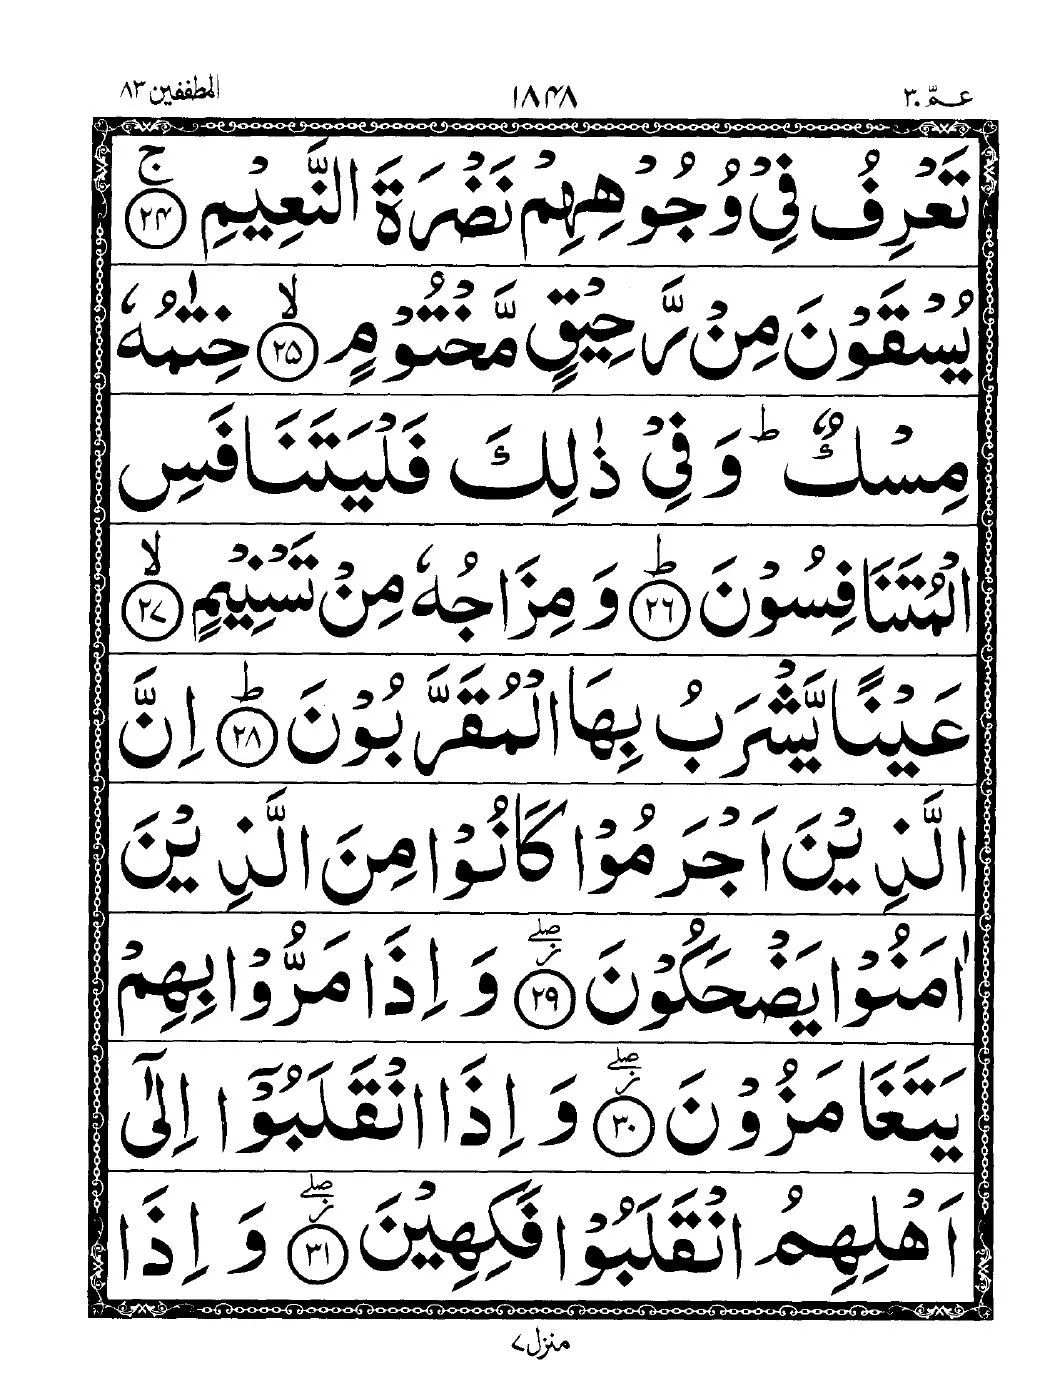 عـمّ ٣٠ ١٨٤٨ المطففين ٨٣
تَعْرِفُ فِيْ وُجُوْهِهِمْ نَضْرَةَ النَّعِيْمِ ۚ‏﴿۲۴﴾
يُسْقَوْنَ مِنْ رَّحِيْقٍ مَّخْتُوْمٍ ۙ‏﴿۲۵﴾ خِتٰمُهٗ
مِسْكٌ ؕ وَ فِيْ ذٰلِكَ فَلْيَتَنَافَسِ
الْمُتَنَافِسُوْنَ ؕ‏﴿۲۶﴾ وَ مِزَاجُهٗ مِنْ تَسْنِيْمٍ ۙ‏﴿۲۷﴾
عَيْنًا يَّشْرَبُ بِهَا الْمُقَرَّبُوْنَ ؕ‏﴿۲۸﴾ اِنَّ
الَّذِيْنَ اَجْرَمُوْا كَانُوْا مِنَ الَّذِيْنَ
اٰمَنُوْا يَضْحَكُوْنَ ۖز‏﴿۲۹﴾ وَ اِذَا مَرُّوْا بِهِمْ
يَتَغَامَزُوْنَ ۖز‏﴿۳۰﴾ وَ اِذَا انْقَلَبُوْۤا اِلٰۤى
اَهْلِهِمُ انْقَلَبُوْا فَكِهِيْنَ ۖز‏﴿۳۱﴾ وَ اِذَا
منزل ٧